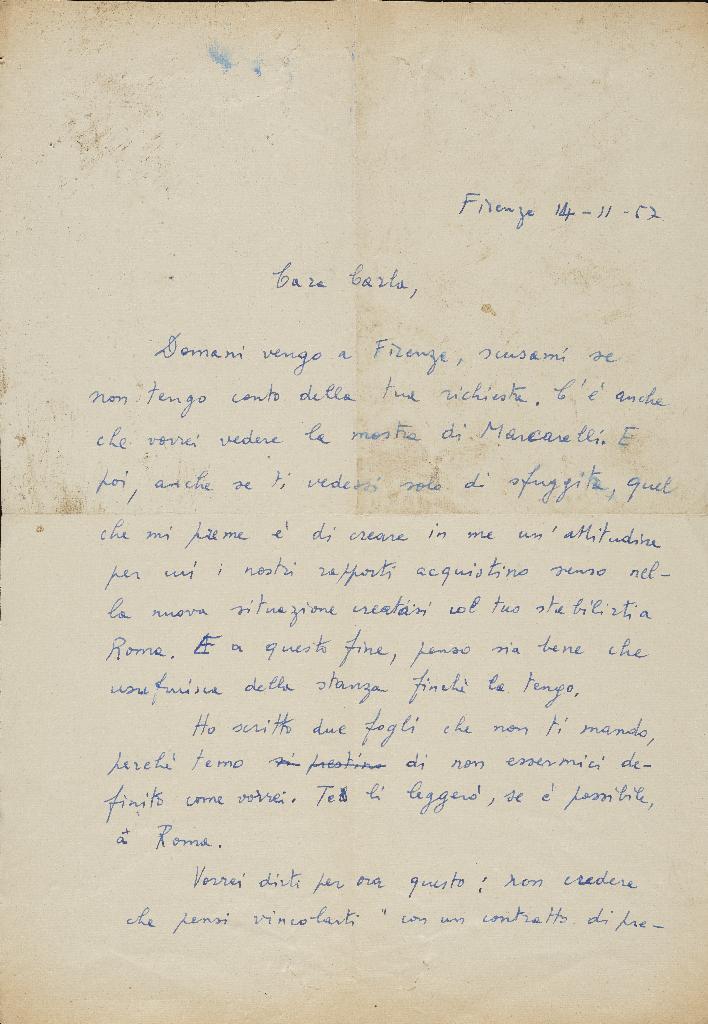 Firenze 14-11-57
Cara Carla,
Domani vengo a Firenze, scusami se
non tengo conto della tua richiesta. C'è anche
che vorrei vedere la mostra di Marcarelli. E
poi, anche se ti vedessi solo di sfuggita, quel
che mi preme è di creare in me un'attitudine
per cui i nostri rapporti acquistino senso nel-
la nuova situazione creatasi col tuo stabilirti a
Roma. E a questo fine, penso sia bene che
usufruisca della stanza finchè la tengo.
Ho scritto due fogli che non ti mando,
perchè temo si prestino di non essermici de-
finito come vorrei. Te li leggerò, se è possibile,
a Roma.
Vorrei dirti per ora questo: non credere
che pensi vincolarti "con un contratto di pre-